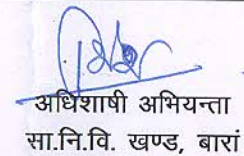 अधिशाषी अभियन्ता
सा.नि.वि. खण्ड, बारां